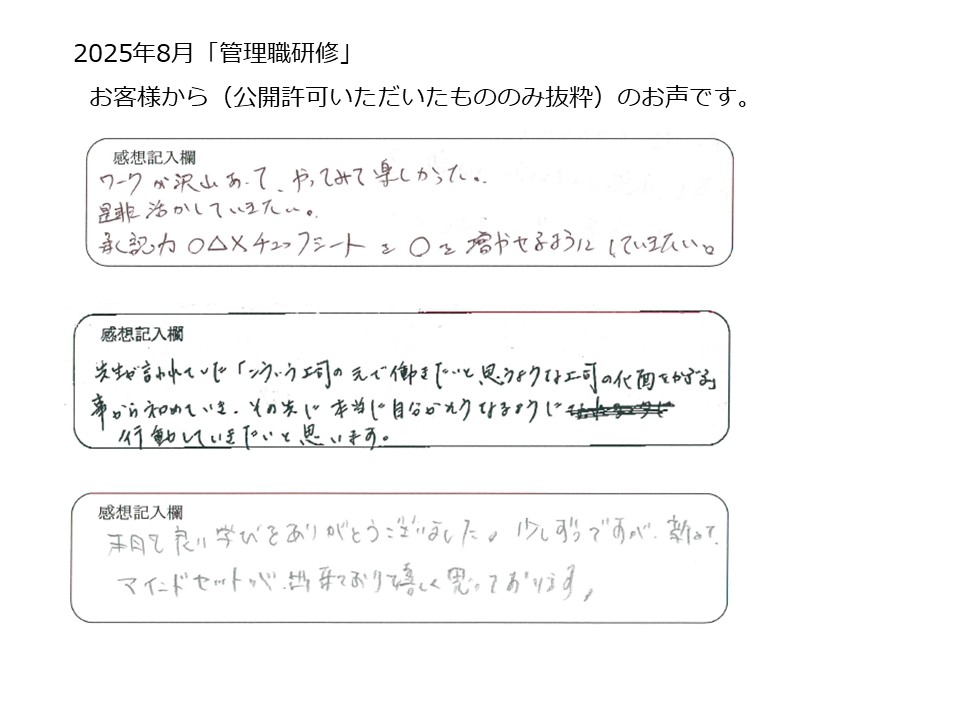 2025年8月「管理職研修」
お客様から（公開許可いただいたもののみ抜粋）のお声です。
感想記入欄
ワークが沢山あって、やってみて楽しかった。
是非活かしていきたい。
承認力〇△×チェックシートを〇を増やせるようにしていきたい。
感想記入欄
先生が言われていた「こういう上司の元で働きたいと思うような上司の仮面をかぶる」
事から初めていき、その先に本当に自分がそうなるように
行動していきたいと思います。
感想記入欄
本日も良い学びをありがとうございました。少しずつですが、新たな
マインドセットが出来ており嬉しく思っております。